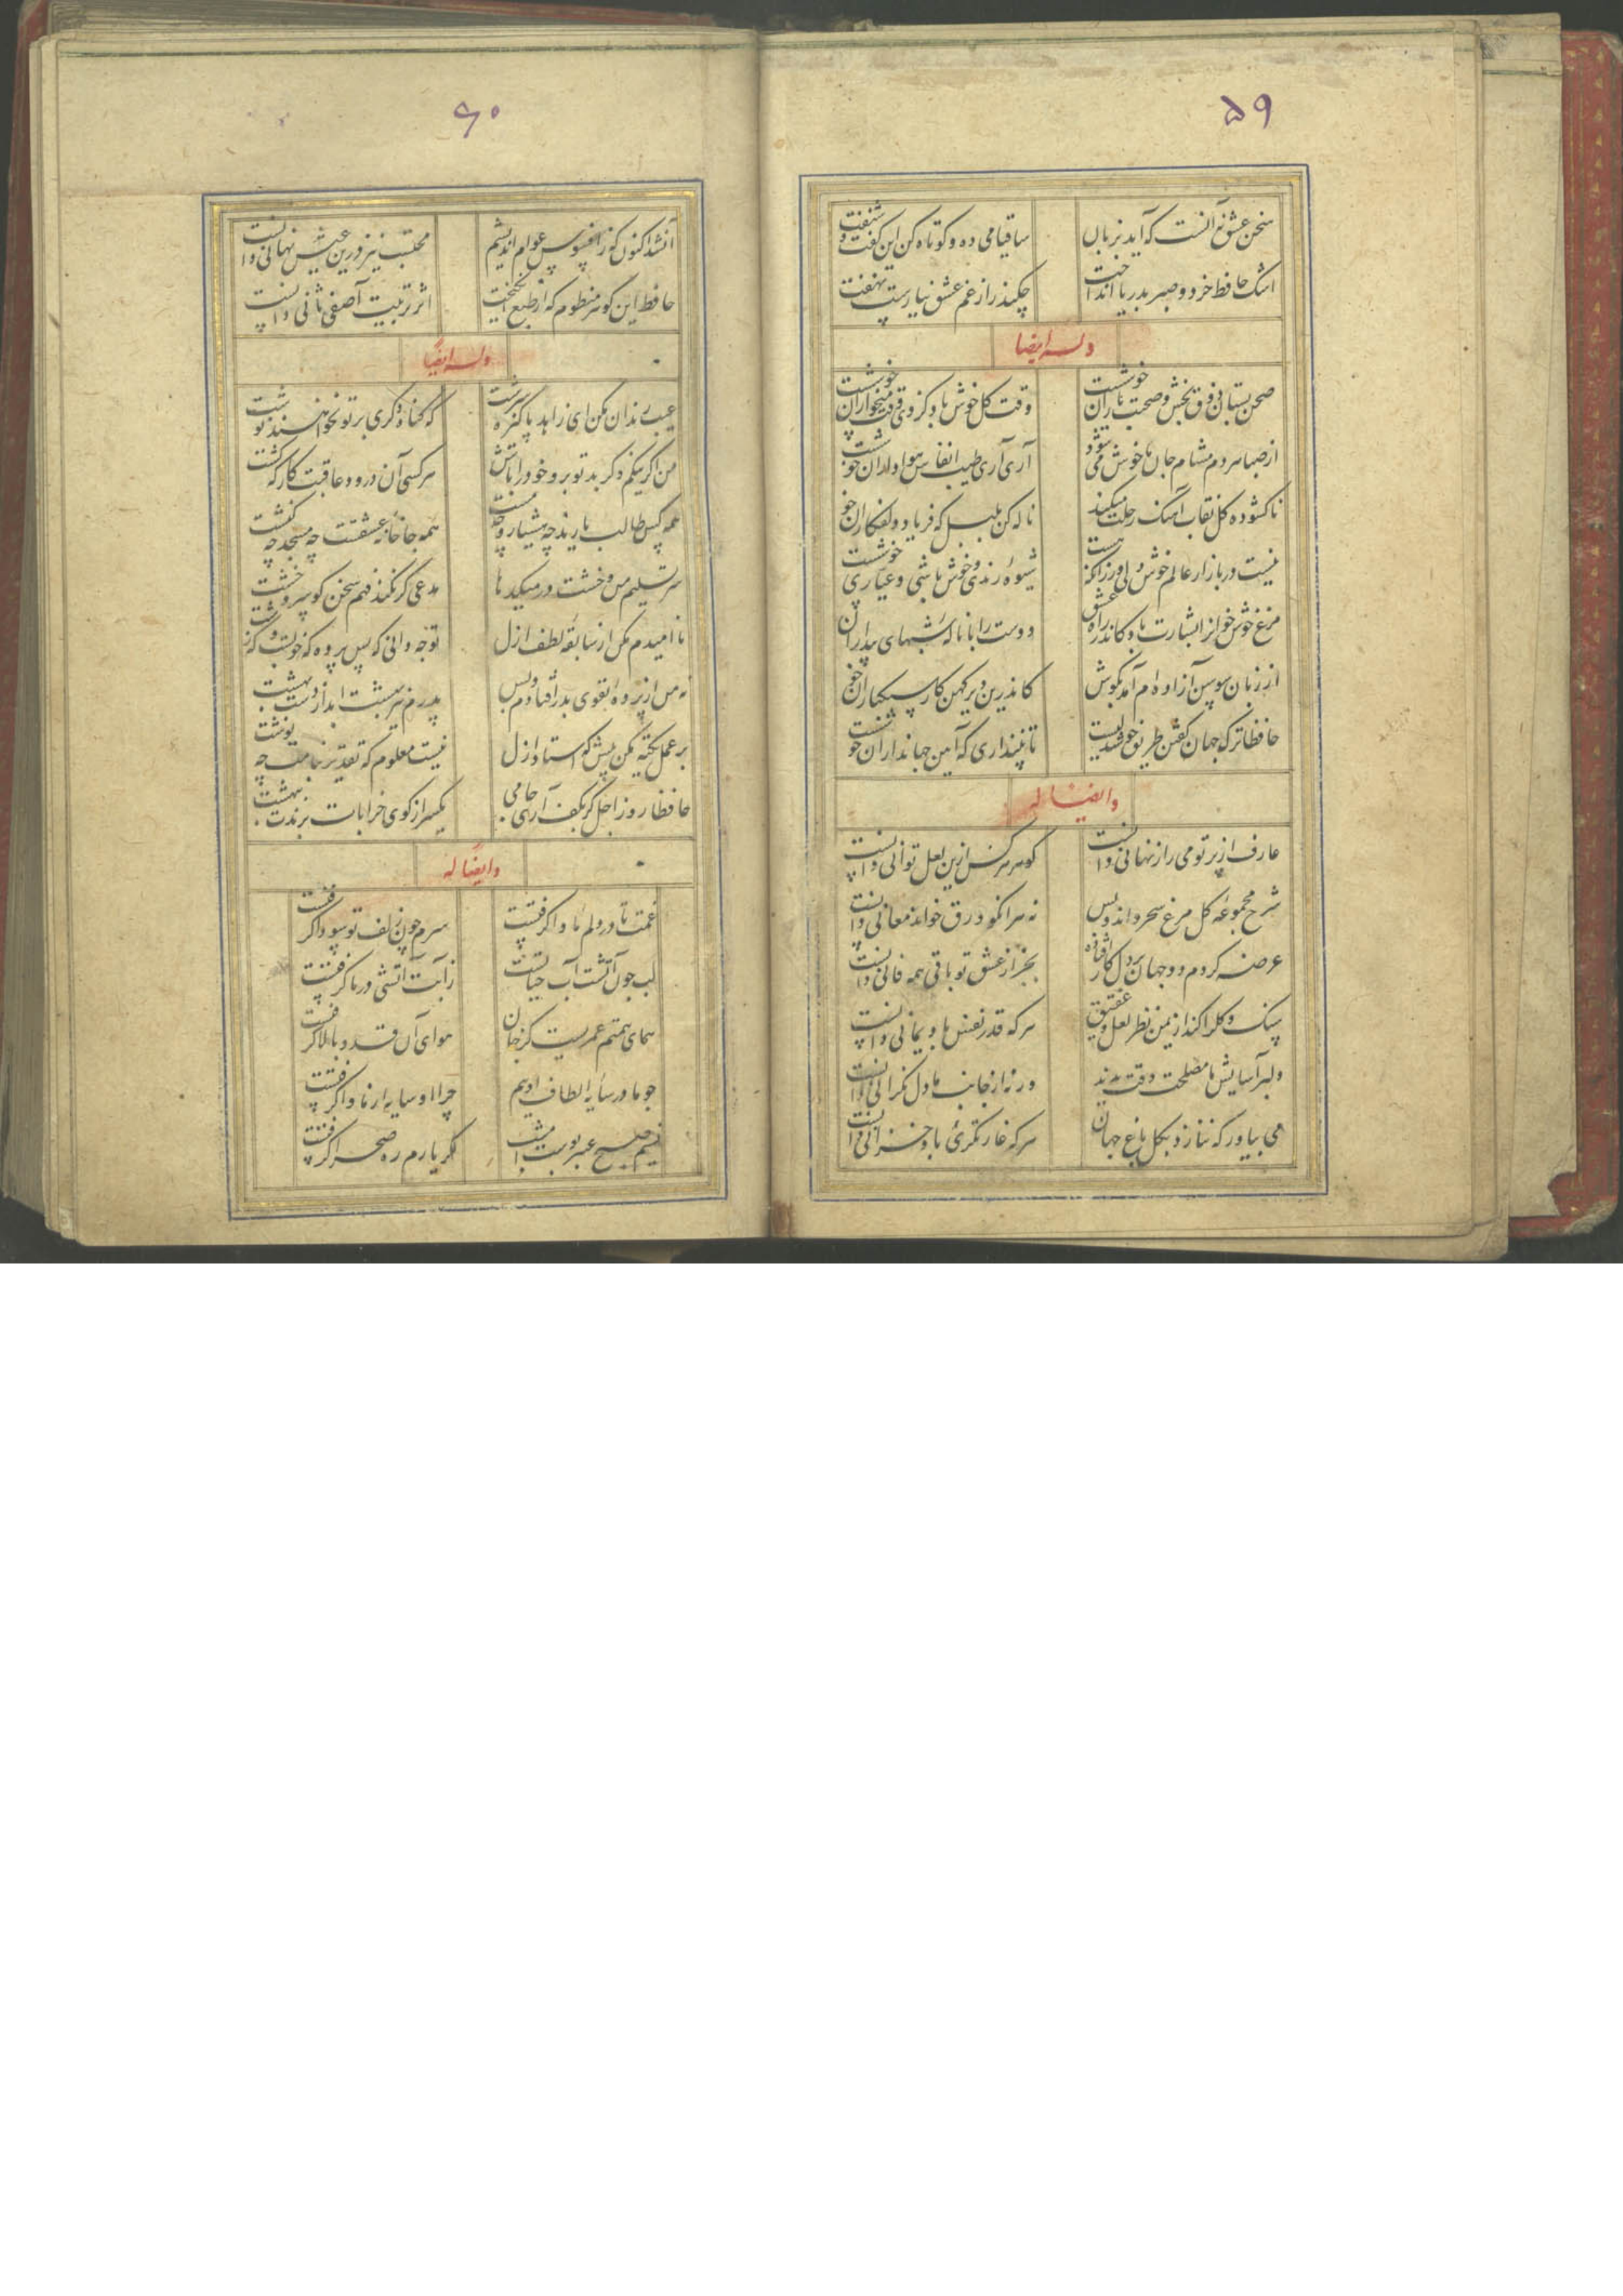 ۵۹
سخن عشق نه آنست که آید بزبان ساقیا می ده و کوتاه کن این گفت و شنفت
اشک حافظ خرد و صبر بدریا انداخت چکند راز غم عشق نیارست نهفت
وله ایضا
صحن بستان ذوق بخش و صحبت یاران خوشست وقت گل خوش باد کز وی وقت میخواران خوشست
از صبا هردم مشام جان ما خوش می شود آری آری طیب انفاس هواداران خوشست
ناکشوده گل نقاب آهنگ رحلت میکند ناله کن بلبل که فریاد دلفکاران خوشست
نیست در بازار عالم خوش دلی ور زانکه هست شیوه رندی و خوش باشی و عیاری خوشست
مرغ خوش خوانرا بشارت باد کاندر راه عشق دوست را با ناله شبهای بیداران
از زبان سوسن آزاده ام آمد بگوش کاندرین دیر کهن کار سبکباران خوشست
حافظا ترک جهان گفتن طریق خوشدلیست تا نپنداری که آیین جهانداران خوشست
و ایضا له
عارف از پرتو می راز نهانی دانست گوهر هر کس ازین لعل توانی دانست
شرح مجموعه گل مرغ سحر داند و بس نه هر آنکو ورقی خواند معانی دانست
عرضه کردم دو جهان بر دل کار افتاده بجز از عشق تو باقی همه فانی دانست
سنگ و گل را کند از یمن نظر لعل و عقیق هر که قدر نفس باد یمانی دانست
دلبر آسایش ما مصلحت وقت ندید ورنه از جانب ما دل نگرانی دانست
می بیاور که ننازد بگل باغ جهان هر که غارتگری باد خزانی دانست
۶۰
آنشد اکنون که ز افسوس عوام اندیشم محتسب نیز درین عیش نهانی دانست
حافظ این گوهر منظوم که از طبع انگیخت اثر تربیت آصفی ثانی دانست
وله ایضا
عیب رندان مکن ای زاهد پاکیزه سرشت که گناه دگری بر تو نخواهند نوشت
من اگر نیکم و گر بد تو برو خود را باش هر کسی آن درود عاقبت کار که کشت
همه کس طالب یارند چه هشیار و چه مست همه جا خانه عشقست چه مسجد چه کنشت
سر تسلیم من و خشت در میکدها مدعی گر نکند فهم سخن گو سر و خشت
ناامیدم مکن از سابقه لطف ازل تو چه دانی که پس پرده که خوبست و که زشت
نه من از پرده تقوی بدر افتادم و بس پدرم نیز بهشت ابد از دست بهشت
بر عمل تکیه مکن پیش که استاد ازل نیست معلوم که تقدیر بنامت چه نوشت
حافظا روز اجل گر بکف آری جامی یکسر از کوی خرابات برندت ببهشت
و ایضا له
غمت تا در دلم ماوا گرفتست سرم چون زلف تو سودا گرفتست
لب چون آتشت آب حیاتست ز آبت آتشی در ما گرفتست
همای همتم عمریست کز جان هوای آن قد و بالا گرفتست
چو ما در سایه الطاف اوییم چرا او سایه از ما وا گرفتست
نسیم صبح عنبر بوست امشب مگر یارم ره صحرا گرفتست